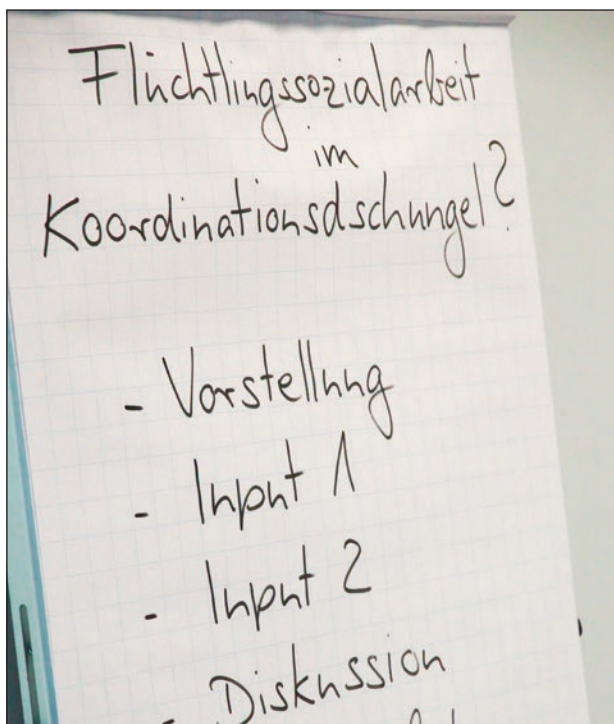 Flüchtlingssozialarbeit
im
Koordinationsdschungel?
- Vorstellung
- Input 1
- Input 2
- Diskussion